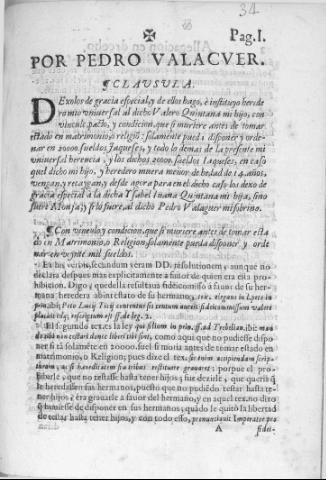 34
✠
Pag.I.
POR PEDRO VALAGVER.
¶CLAVSVLA.
DExolos de gracia especial, y de ellos hago, è instituyo here de
ro mio vniversal al dicho Valero Quintana mi hijo, con
vinculo, pacto, y condicion, que si muriere antes de tomar
estado en matrimonio, o religiò: solamente pueda disponer y orde-
nar en 20000. sueldos Iaqueses, y todo lo demas de la presente mi
vniversal herencia, y los dichos 2000. sueldos Iaqueses, en caso
quel dicho mi hijo, y heredero muera menor de hedad de 14. años,
vengan, y recaygan, y desde agora para en el dicho caso los dexo de
gracia especial a la dicha Ysabel Iuana Quintana mi hija, sino
fuere Monja; y si lo fuere, al dicho Pedro Valaguer mi sobrino.
¶Con vinculo y condicion, que si muriere antes de tomar esta
do en Matrimonio, o Religion, solamente pueda disponer y orde
nar en veynte mil sueldos.
Es las verbis, secundum veram DD. resolutionem, aunque no
declara despues mas explicitamente a fauor de quien era esta pro-
hibicion. Digo, quedella resultaua fideicomisso a fauor de su her-
mana heredera abintestato de su hermano,
El segundo tex. es la ley
do
ner si ta solamēte en 20000. sueł. si moria antes de tomar estado en
matrimonio, o Religion; pues dize el tex.
porque el pro-
hibirle, que no testasse hasta tener hijos, fue dezirle, que queria q̄
le heredassen sus hermanos, puesto que no pudiēdo testar hasta te-
ner hijos, era grouarle a fauor del hermano, y en aquel tex. no dixo
q̄ huuiesse de disponer en sus hermanos; quādo le quitò la libertad
de testar hasta tener hijos, y con todo esso, pronunciauit Imperator pro
A fidei-